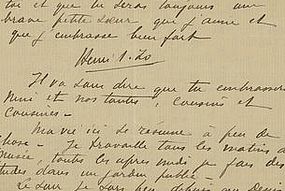 toi et que tu seras toujours une
brave petite sœur que j'aime et
que j'embrasse bien fort
Henri
Il va sans dire que tu embrasses
Mimi et nos tantes, cousins et
cousines –
Ma vie ici se résume à peu de
chose – Je travaille tous les matins a
musée, toutes les après midi je fais des
tudes dans un jardin public –
Le soir je